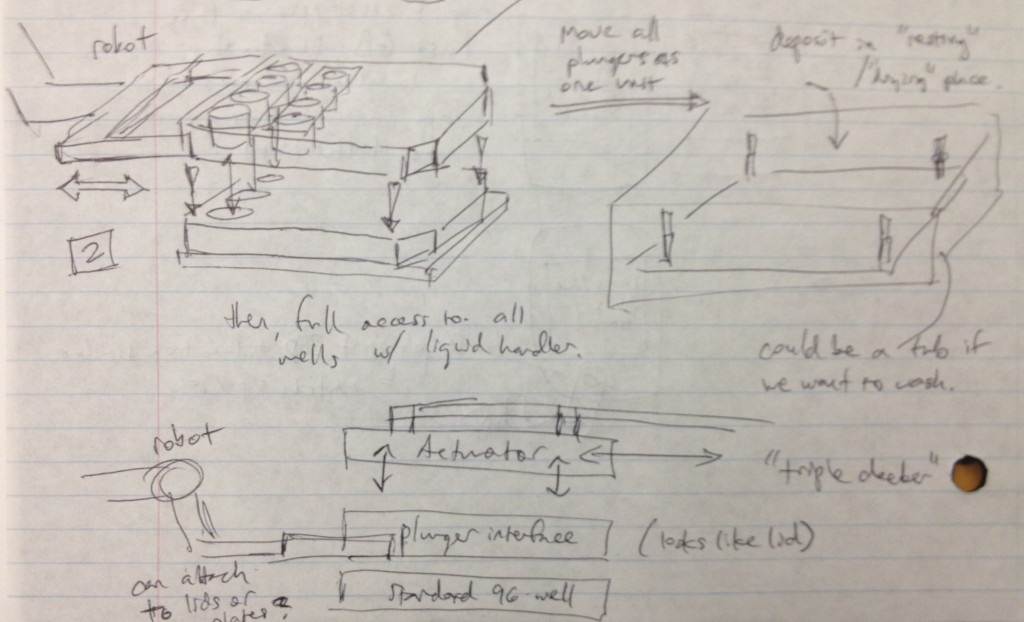 robot
move all
plungers as
one unit
deposit in "resting"
/"drying" place.
2
then, full access to all
wells w/ liquid handler.
could be a tub if
we want to wash.
robot
Actuator
"triple decker"
plunger interface
(looks like lid)
can attach
to lids or
plates?
standard 96-well